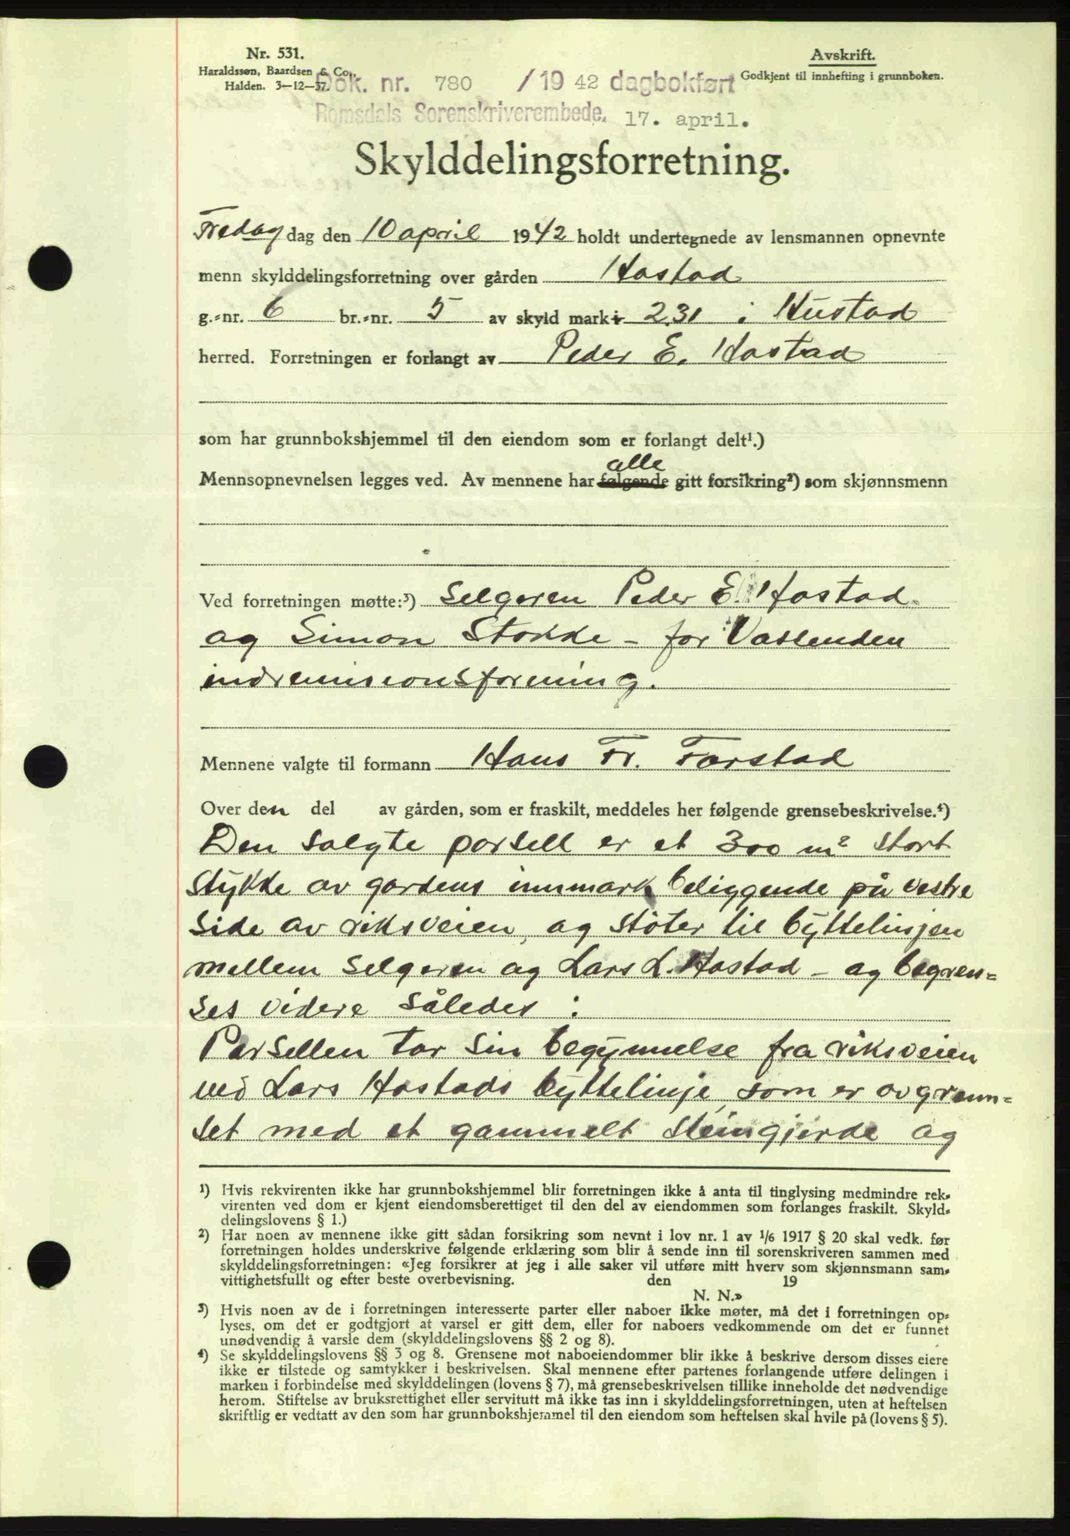 Nr. 531.
Haraldssøn, Baardsen & Co.,
Halden. 3—12—37.
Avskrift.
Godkjent til innhefting i grunnboken.
Dok. nr. 780 /19 42 dagbokført
Romsdals Sorenskriverembede. 17. april.
Skylddelingsforretning.
Fredag dag den 10 april 1942 holdt undertegnede av lensmannen opnevnte
menn skylddelingsforretning over gården Hostad
g.-nr. 6 br.-nr. 5 av skyld mark 2.31 i Hustad
herred. Forretningen er forlangt av Peder E. Hostad
som har grunnbokshjemmel til den eiendom som er forlangt delt¹.)
alle
Mennsopnevnelsen legges ved. Av mennene har følgende gitt forsikring²) som skjønnsmenn
Ved forretningen møtte:³) Selgeren Peder E. Hostad.
og Simon Stokke – for Vassenden
indremisionsforening.
Mennene valgte til formann Hans Fr. Farstad
Over den del av gården, som er fraskilt, meddeles her følgende grensebeskrivelse.⁴)
Den solgte parsell er et 300 m² stort
stykke av gardens innmark beliggende på vestre
side av riksveien, og støter til byttelinjen
mellem selgeren og Lars L. Hostad – og begren=
ses videre således :
Parsellen tar sin begynnelse fra riksveien
ved Lars Hostads byttelinje, som er avgrenn=
set med et gammelt steingjerde og
¹) Hvis rekvirenten ikke har grunnbokshjemmel blir forretningen ikke å anta til tinglysing medmindre rek-
virenten ved dom er kjent eiendomsberettiget til den del av eiendommen som forlanges fraskilt. Skyld-
delingslovens § 1.)
²) Har noen av mennene ikke gitt sådan forsikring som nevnt i lov nr. 1 av ¹/₆ 1917 § 20 skal vedk. før
forretningen holdes underskrive følgende erklæring som blir å sende inn til sorenskriveren sammen med
skylddelingsforretningen: «Jeg forsikrer at jeg i alle saker vil utføre mitt hverv som skjønnsmann sam-
vittighetsfullt og efter beste overbevisning. den 19
N. N.»
³) Hvis noen av de i forretningen interesserte parter eller naboer ikke møter, må det i forretningen op-
lyses, om det er godtgjort at varsel er gitt dem, eller for naboers vedkommende om det er funnet
unødvendig å varsle dem (skylddelingslovens §§ 2 og 8).
⁴) Se skylddelingslovens §§ 3 og 8. Grensene mot naboeiendommer blir ikke å beskrive dersom disses eiere
ikke er tilstede og samtykker i beskrivelsen. Skal mennene efter partenes forlangende utføre delingen i
marken i forbindelse med skylddelingen (lovens § 7), må grensebeskrivelsen tillike inneholde det nødvendige
herom. Stiftelse av bruksrettighet eller servitutt må ikke tas inn i skylddelingsforretningen, uten at heftelsen
skriftlig er vedtatt av den som har grunnbokshjemmel til den eiendom som heftelsen skal hvile på (lovens § 5).